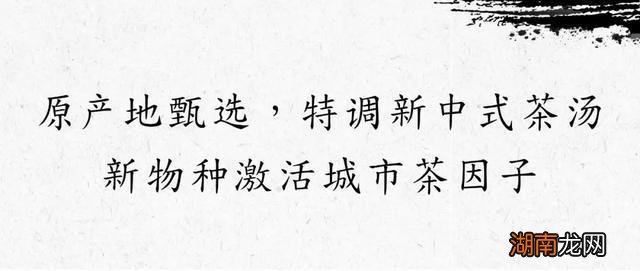 原产地甄选，特调新中式茶汤
新物种激活城市茶因子
湖南龙网